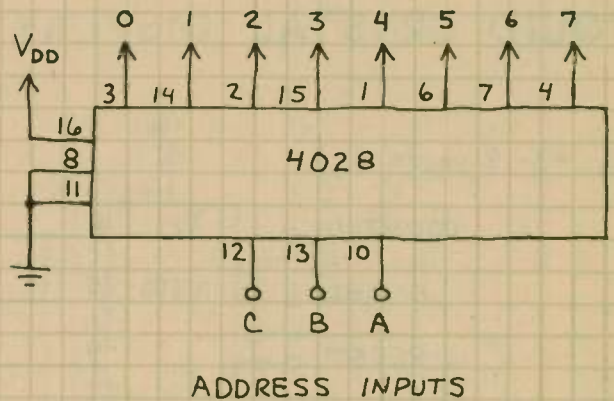 0 1 2 3 4 5 6 7
V_DD
3 14 2 15 1 6 7 4
16
8
11
4028
12 13 10
C B A
ADDRESS INPUTS